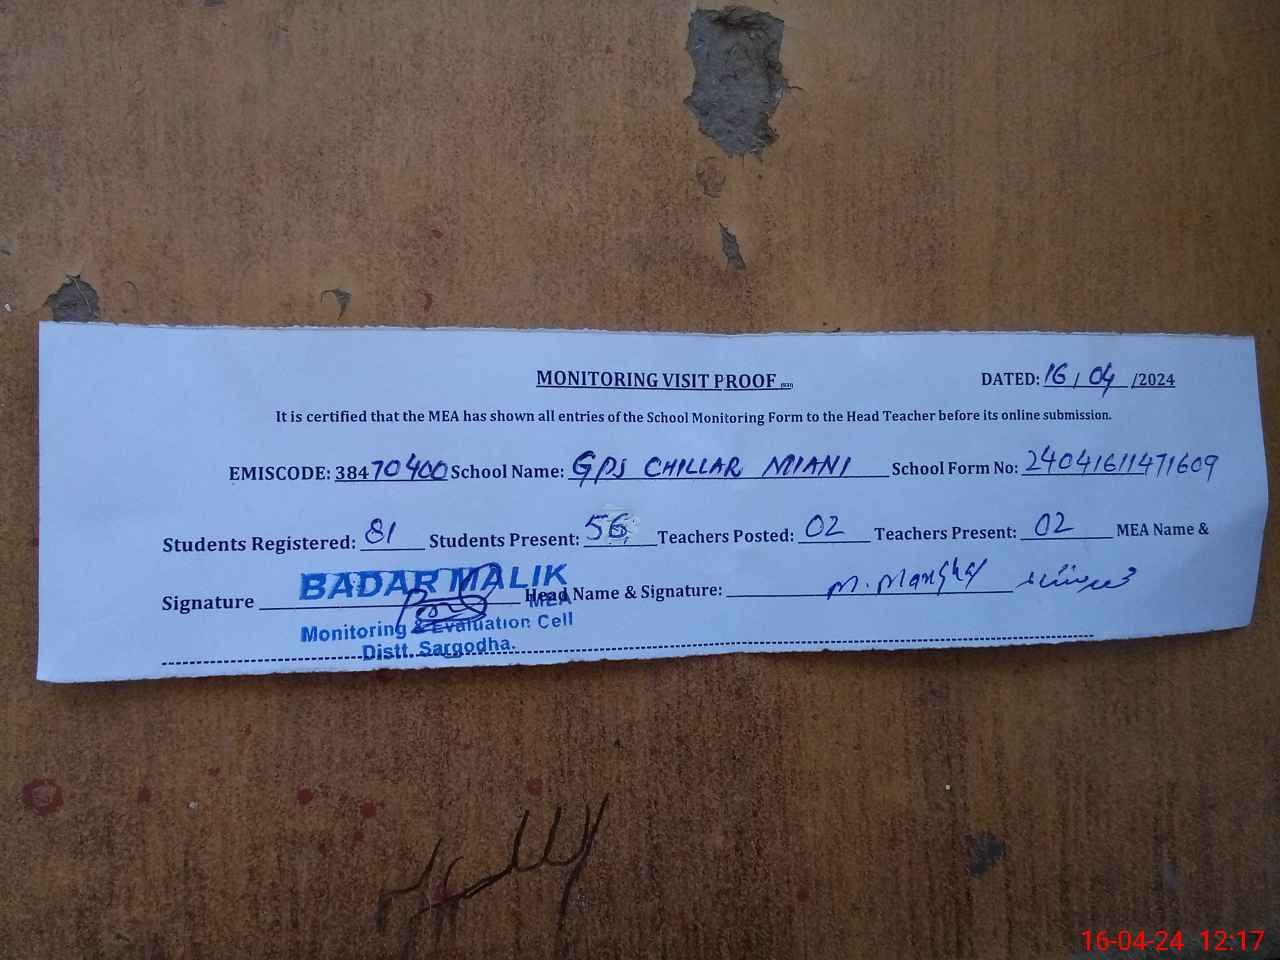 MONITORING VISIT PROOF DATED: 16/04/2024
It is certified that the MEA has shown all entries of the School Monitoring Form to the Head Teacher before its online submission.
EMISCODE: 38470400 School Name: GPS CHILLAR MIANI School Form No: 24041611471609
Students Registered: 81 Students Present: 56 Teachers Posted: 02 Teachers Present: 02 MEA Name &
Signature Head Name & Signature: M.
BADAR MALIK
MEA
Monitoring & Evaluation Cell
Distt. Sargodha.
16-04-24 12:17